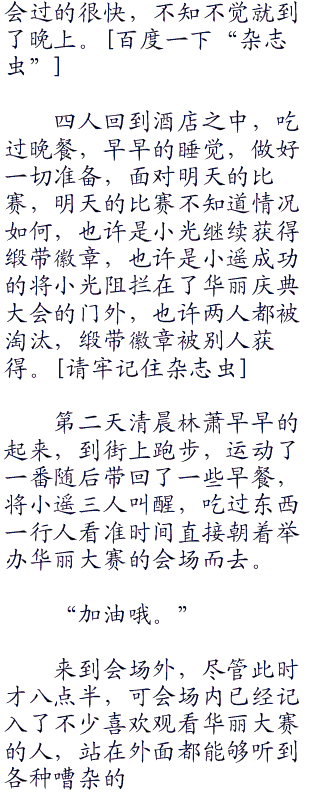 会过的很快，不知不觉就到
了晚上。[百度一下“杂志
虫”]
四人回到酒店之中，吃
过晚餐，早早的睡觉，做好
一切准备，面对明天的比
赛，明天的比赛不知道情况
如何，也许是小光继续获得
缎带徽章，也许是小遥成功
的将小光阻拦在了华丽庆典
大会的门外，也许两人都被
淘汰，缎带徽章被别人获
得。[请牢记住杂志虫]
第二天清晨林萧早早的
起来，到街上跑步，运动了
一番随后带回了一些早餐，
将小遥三人叫醒，吃过东西
一行人看准时间直接朝着举
办华丽大赛的会场而去。
“加油哦。”
来到会场外，尽管此时
才八点半，可会场内已经记
入了不少喜欢观看华丽大赛
的人，站在外面都能够听到
各种嘈杂的